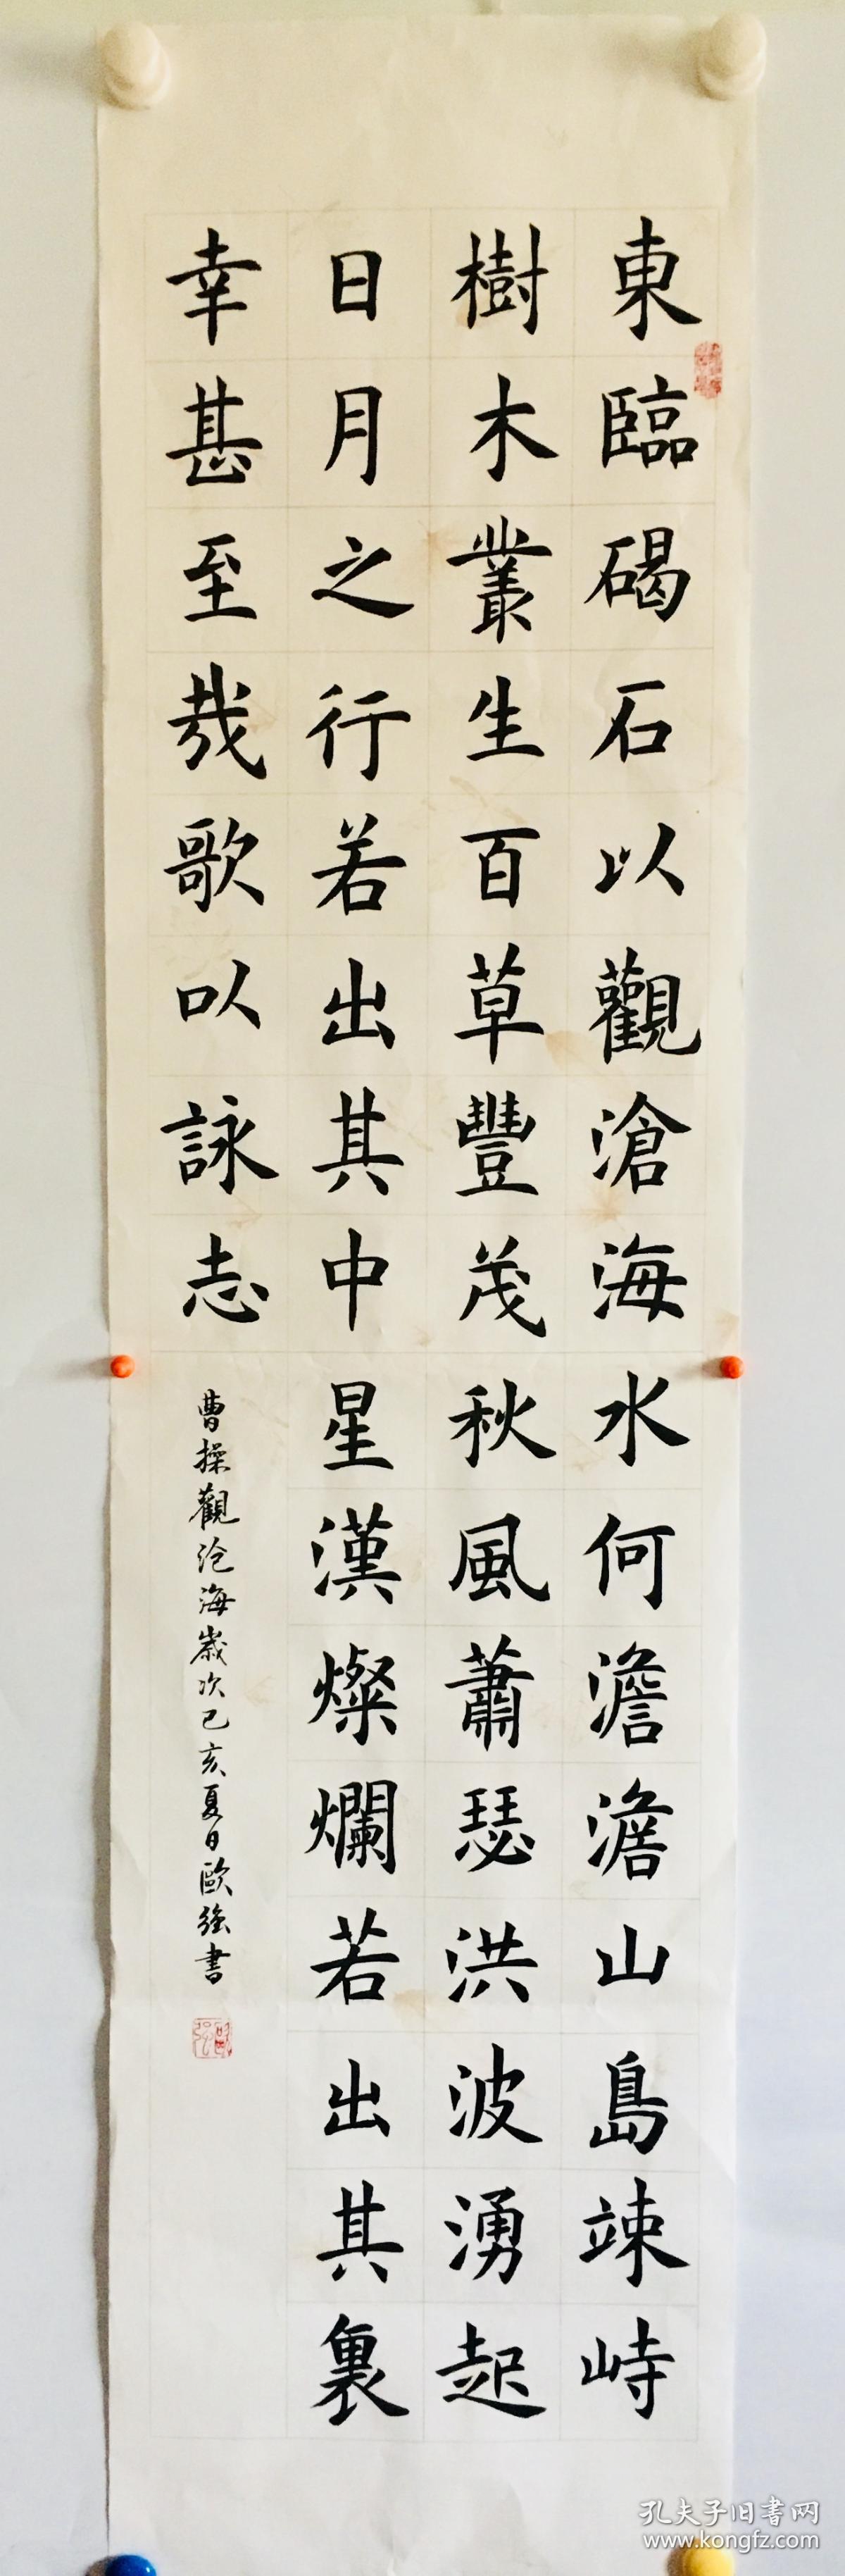 東臨碣石以觀滄海水何澹澹山島竦峙
樹木叢生百草豐茂秋風蕭瑟洪波湧起
日月之行若出其中星漢燦爛若出其裏
幸甚至哉歌以詠志
曹操觀滄海歲次己亥夏日歐強書
孔夫子旧書网
www.kongfz.com